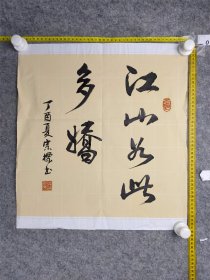 江山如此
多嬌
丁酉夏宗